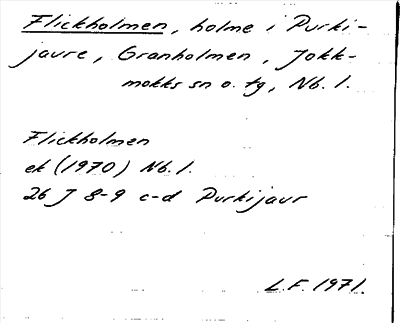 Flickholmen, holme i Purki-
jaure, Granholmen, Jokk-
mokks sn o. tg, Nb. l.
Flickholmen
ek (1970) Nb. l.
26 J 8-9 c-d Purkijaur
L.F. 1971.